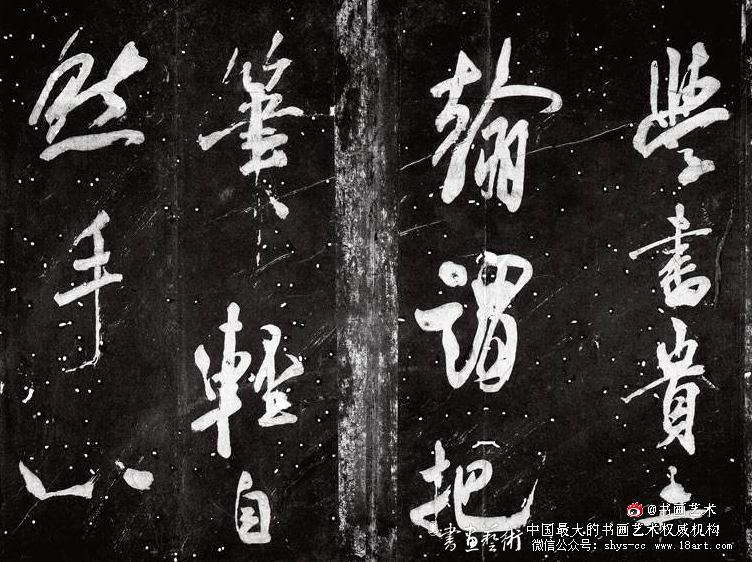 學書貴弄
翰謂把
筆輕自
然手心
@书画艺术
書画藝術
中国最大的书画艺术权威机构
微信公众号: shys-cc www.18art.com